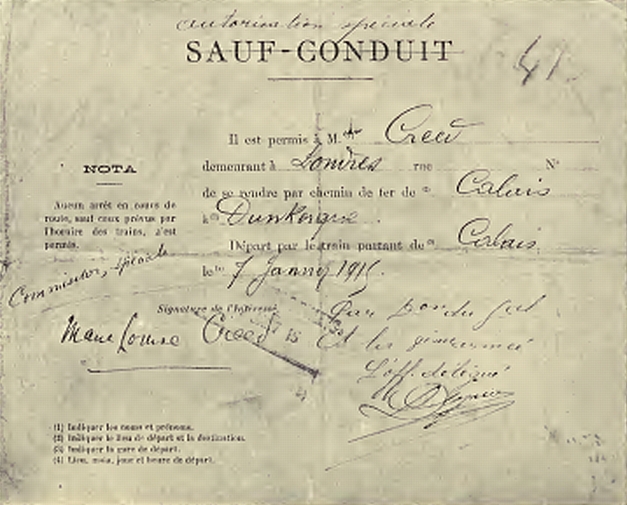 autorisation spéciale
SAUF-CONDUIT
41.
Il est permis à M. Creed
demeurant à Londres rue N°
de se rendre par chemin de fer de Calais
à Dunkerque.
Départ par le train partant de Calais
le 7 1915.
NOTA
Aucun arrêt en cours de
route, sauf ceux prévus par
l'horaire des trains, n'est
permis.
spéciale
Signature de l'Intéressé
Marie Louise Creed
Par du
Et
L'off. délégué
(1) Indiquer les noms et prénoms.
(2) Indiquer le lieu de départ et la destination.
(3) Indiquer la gare de départ.
(4) Lieu, mois, jour et heure de départ.